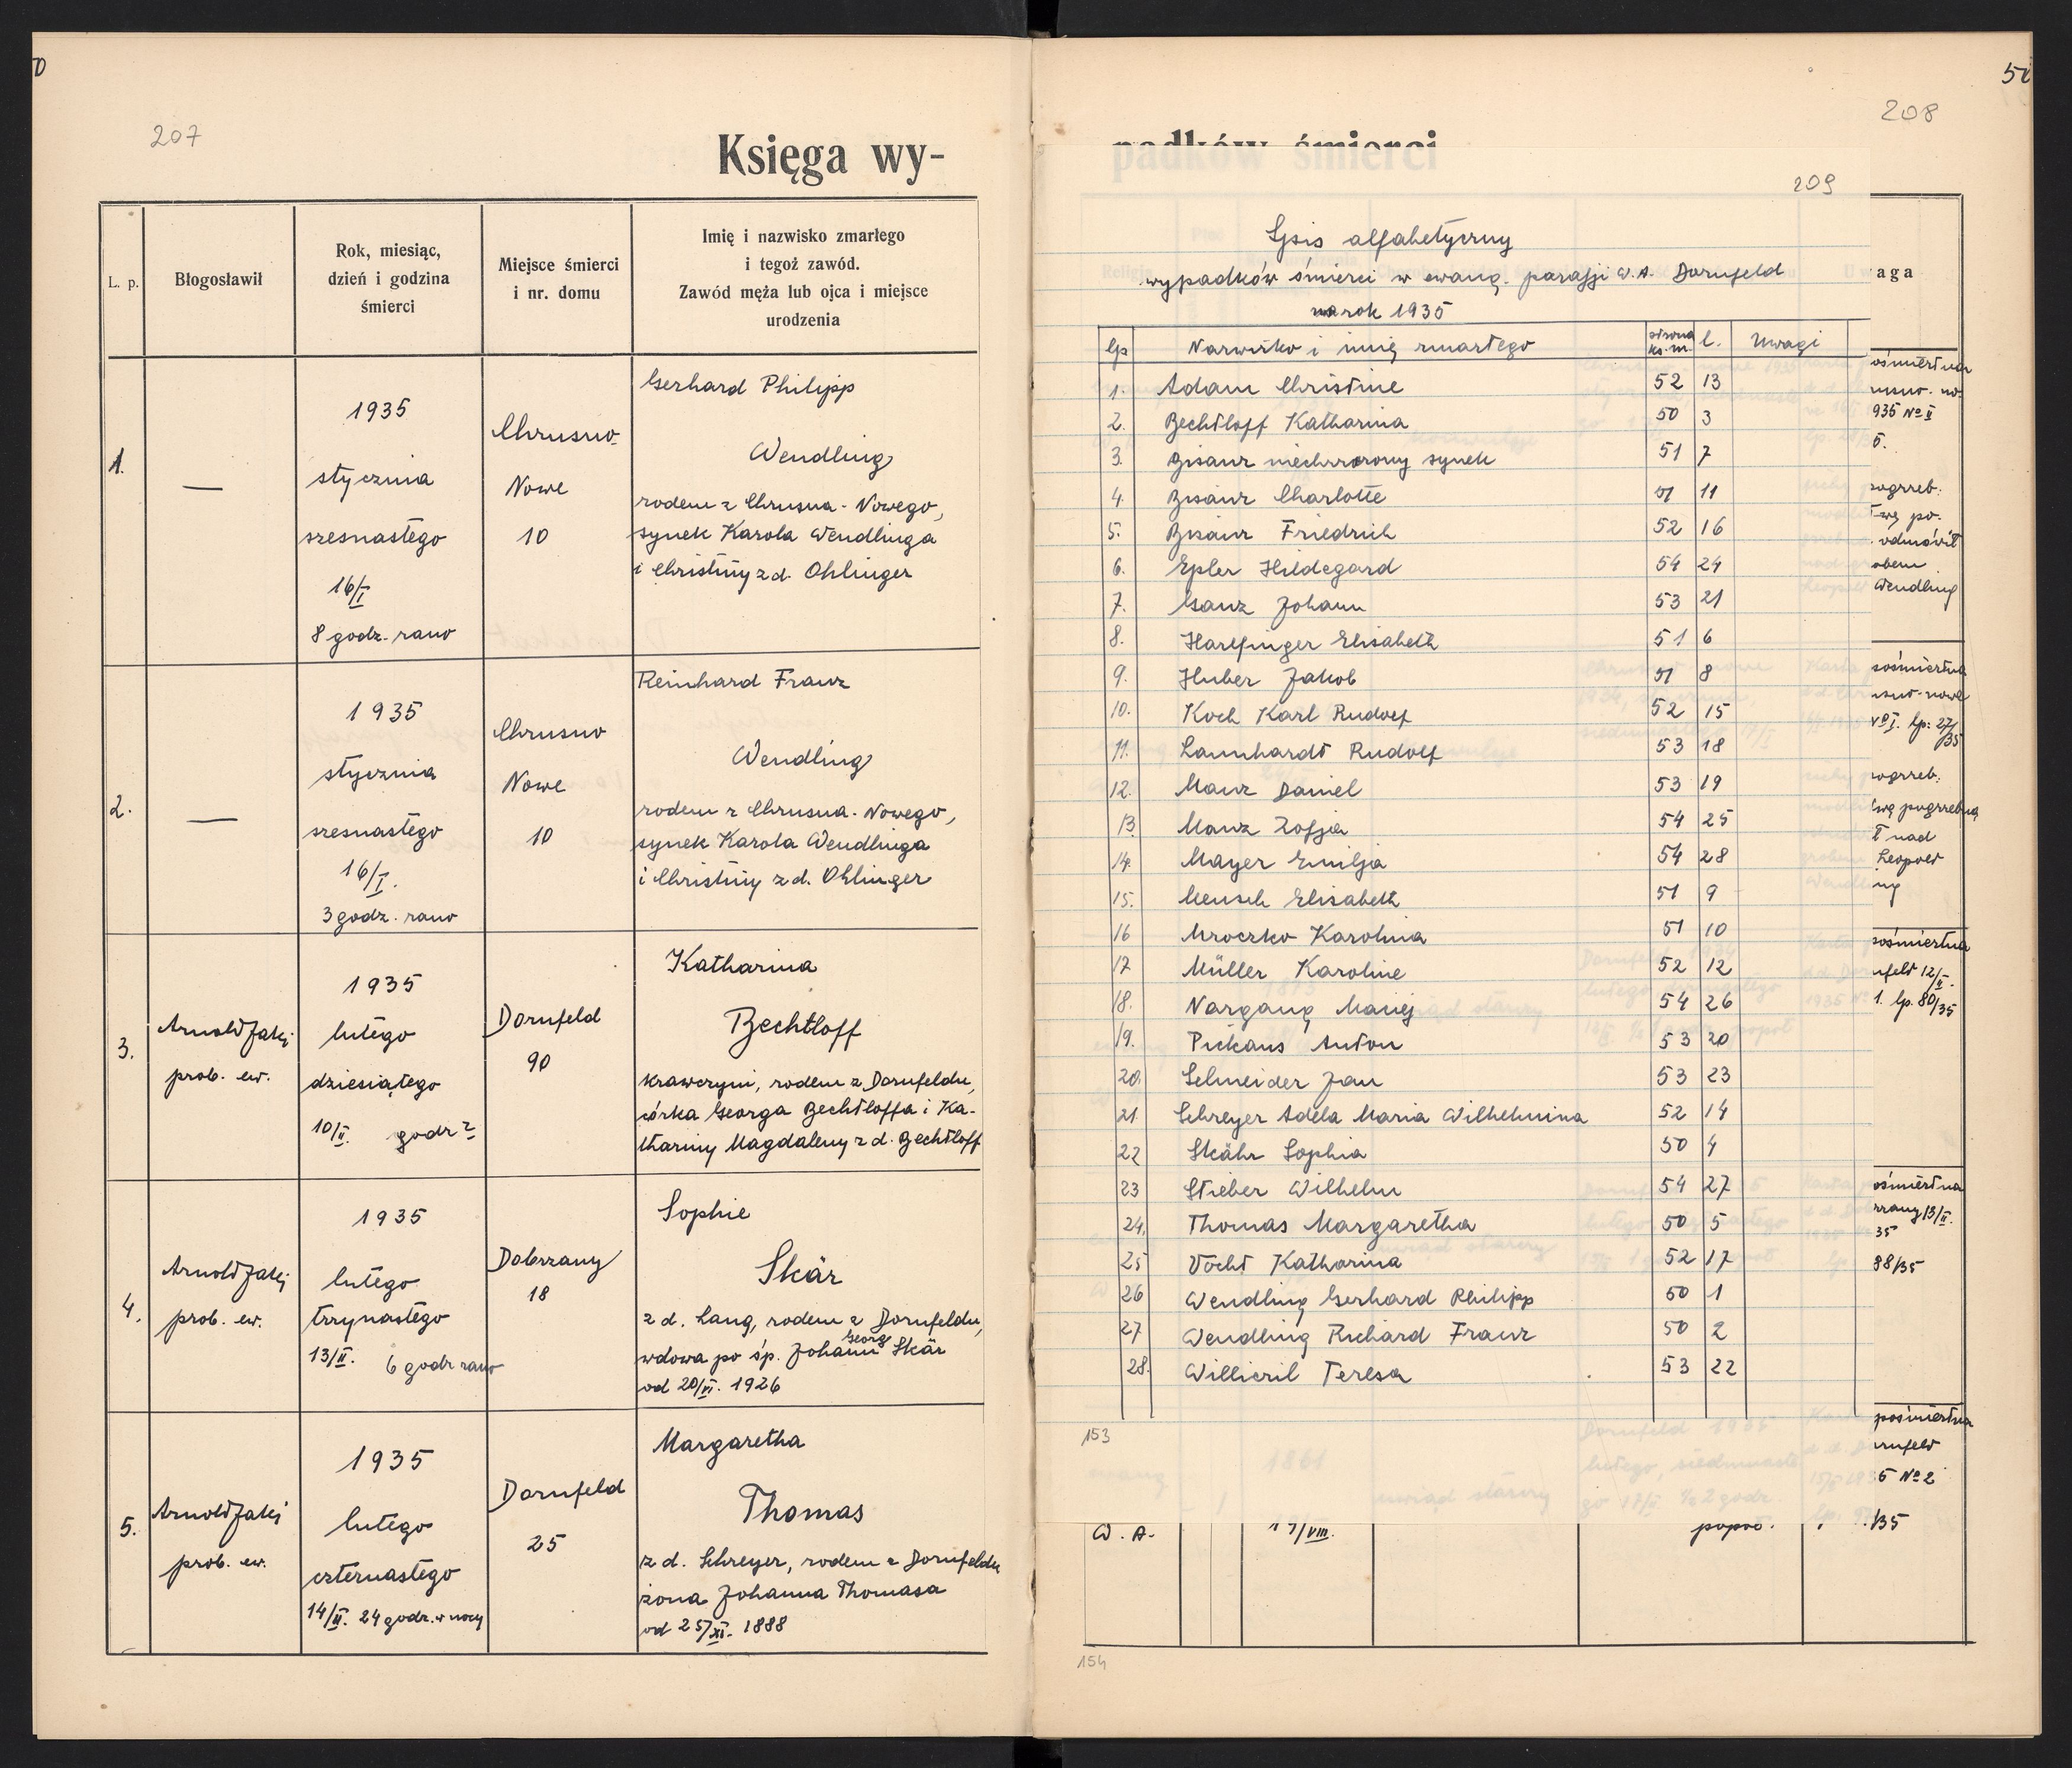 50
207
Księga wy-
L. p.
Błogosławił
Rok, miesiąc,
dzień i godzina
śmierci
Miejsce śmierci
i nr. domu
Imię i nazwisko zmarłego
i tegoż zawód.
Zawód męża lub ojca i miejsce
urodzenia
1.
—
1935
stycznia
szesnastego
16/I
8 godz. rano
Chrusno-
Nowe
10
Gerhard Philipp
Wendling
rodem z Chrusna-Nowego,
synek Karola Wendlinga
i Christiny z d. Ohlinger
2.
—
1935
stycznia
szesnastego
16/I.
3 godz. rano
Chrusno
Nowe
10
Reinhard Franz
Wendling
rodem z Chrusna-Nowego,
synek Karola Wendlinga
i Christiny z d. Ohlinger
3.
Arnold Jaki
prob. ew.
1935
lutego
dziesiątego
10/II. godz
Dornfeld
90
Katharina
Bechtloff
krawczyni, rodem z Dornfeldu,
córka Georga Bechtloffa i Ka-
thariny Magdaleny z d. Bechtloff
4.
Arnold Jaki
prob. ew.
1935
lutego
trzynastego
13/II. 6 godz rano
Dobrzany
18
Sophie
Skär
z d. Lang, rodem z Dornfeldu,
wdowa po śp. Johann Georg Skär
od 20/VI. 1926
5.
Arnold Jaki
prob. ew.
1935
lutego
czternastego
14/II. 24 godz. w nocy
Dornfeld
25
Margaretha
Thomas
z d. Schreyer, rodem z Dornfeldu
żona Johanna Thomasa
od 25/XI. 1888
208
padków śmierci
209
Spis alfabetyczny
wypadków śmierci w ewang. parafji W.A. Dornfeld
na rok 1935
lp Nazwisko i imię zmarłego strona ks. m. l. Uwagi
1. Adam Christine 52 13
2. Bechtloff Katharina 50 3
3. Bisanz niechrzczony synek 51 7
4. Bisanz Charlotte 51 11
5. Bisanz Friedrich 52 16
6. Epler Hildegard 54 24
7. Ganz Johann 53 21
8. Harlfinger Elisabeth 51 6
9. Huber Jakob 51 8
10. Koch Karl Rudolf 52 15
11. Launhardt Rudolf 53 18
12. Manz Daniel 53 19
13. Manz Zofja 54 25
14. Mayer Emilja 54 28
15. Mensch Elisabeth 51 9
16 Mroczko Karolina 51 10
17 Müller Karoline 52 12
18. Nargang Maciej 54 26
19. Pickaus Anton 53 20
20. Schneider Jan 53 23
21. Schreyer Adela Maria Wilhelmina 52 14
22 Skähr Sophia 50 4
23 Stieber Wilhelm 54 27
24. Thomas Margaretha 50 5
25 Vocht Katharina 52 17
26 Wendling Gerhard Philipp 50 1
27 Wendling Richard Franz 50 2
28. Willicril Teresa 53 22
153
aga
ośmiertna
935 № II
5.
ogrzeb.
po.
odmówił
obem
Wendling
ośmiertna
-nowe
№ I. lp: 27/35
ogrzeb.
pogrzebną
ł nad
Leopold
ng
ośmiertna
nfeld 12/II.
1. lp. 80/35
ośmiertna
rzany 13/II.
35
88/35
pośmiertna
rnfeld
5 № 2
/35
W. A.
17/VIII.
popoł.
154